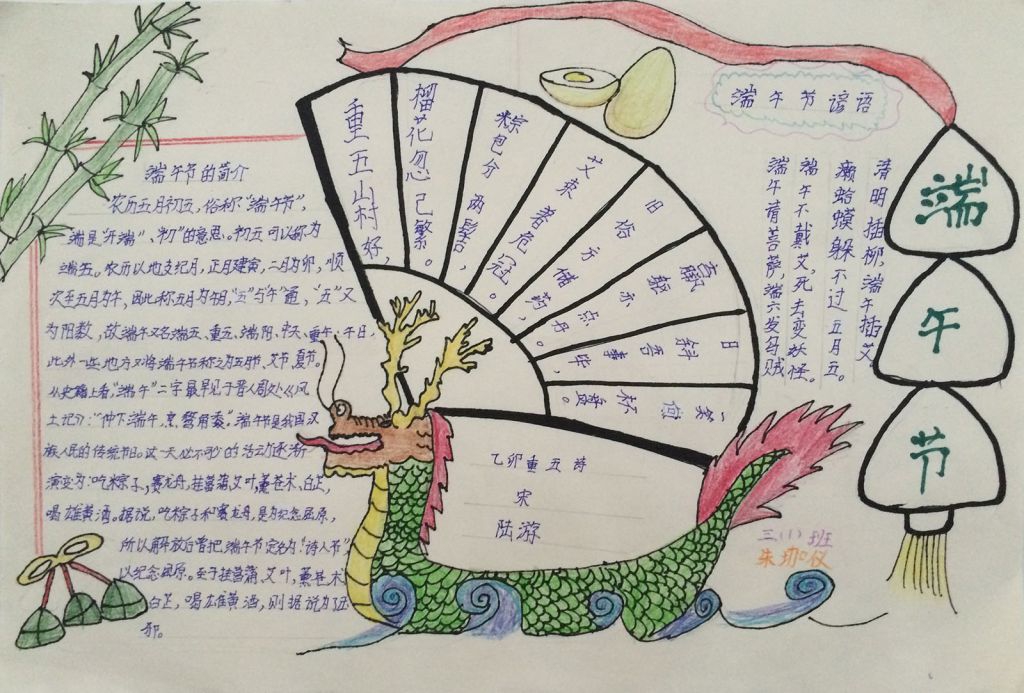 端午节的简介
农历五月初五，俗称"端午节"，
端是"开端"、"初"的意思。初五可以称为
端五。农历以地支纪月，正月建寅，二月为卯，顺
次至五月为午，因此称五月为午月，"五"与"午"通，"五"又
为阳数，故端午又名端五、重五、端阳、中天、重午、午日，
此外一些地方又将端午节称之为五月节、艾节、夏节。
从史籍上看，"端午"二字最早见于晋人周处《风
土记》："仲下端午，烹鹜角黍"，端午节是我国汉
族人民的传统节日。这一天必不可少的活动逐渐
演变为：吃粽子，赛龙舟，挂菖蒲艾叶，薰苍术、白芷，
喝雄黄酒。据说，吃粽子和赛龙舟，是为纪念屈原，
所以解放后曾把端午节定名为"诗人节"，
以纪念屈原。至于挂菖蒲、艾叶，薰苍术、
白芷，喝雄黄酒，则据说为了
邪。
重五山村好，
榴花忽已繁。
粽包分两髻，
艾束著危冠。
旧俗方储药，
亦点丹。
日斜吾事毕，
一笑向杯
乙卯重五诗
宋
陆游
端午节谚语
清明插柳端午插艾
癞蛤蟆躲不过五月五。
端午不戴艾，死去变妖怪。
端午请菩萨，端六发乌贼
端
午
节
三(1)班